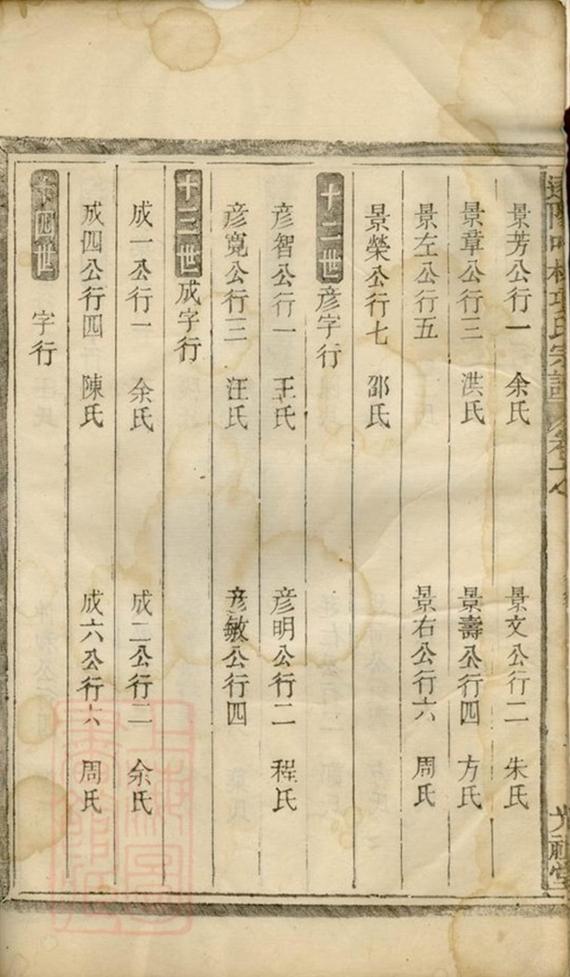 景芳公行一 余氏 景文公行二 朱氏
景章公行三 洪氏 景壽公行四 方氏
景左公行五 景右公行六 周氏
景榮公行七 邵氏
十二世 彦字行
彦智公行一 王氏 彦明公行二 程氏
彦寬公行三 汪氏 彦敏公行四
十三世 成字行
成一公行一 余氏 成二公行二 余氏
成四公行四 陳氏 成六公行六 周氏
十四世 字行